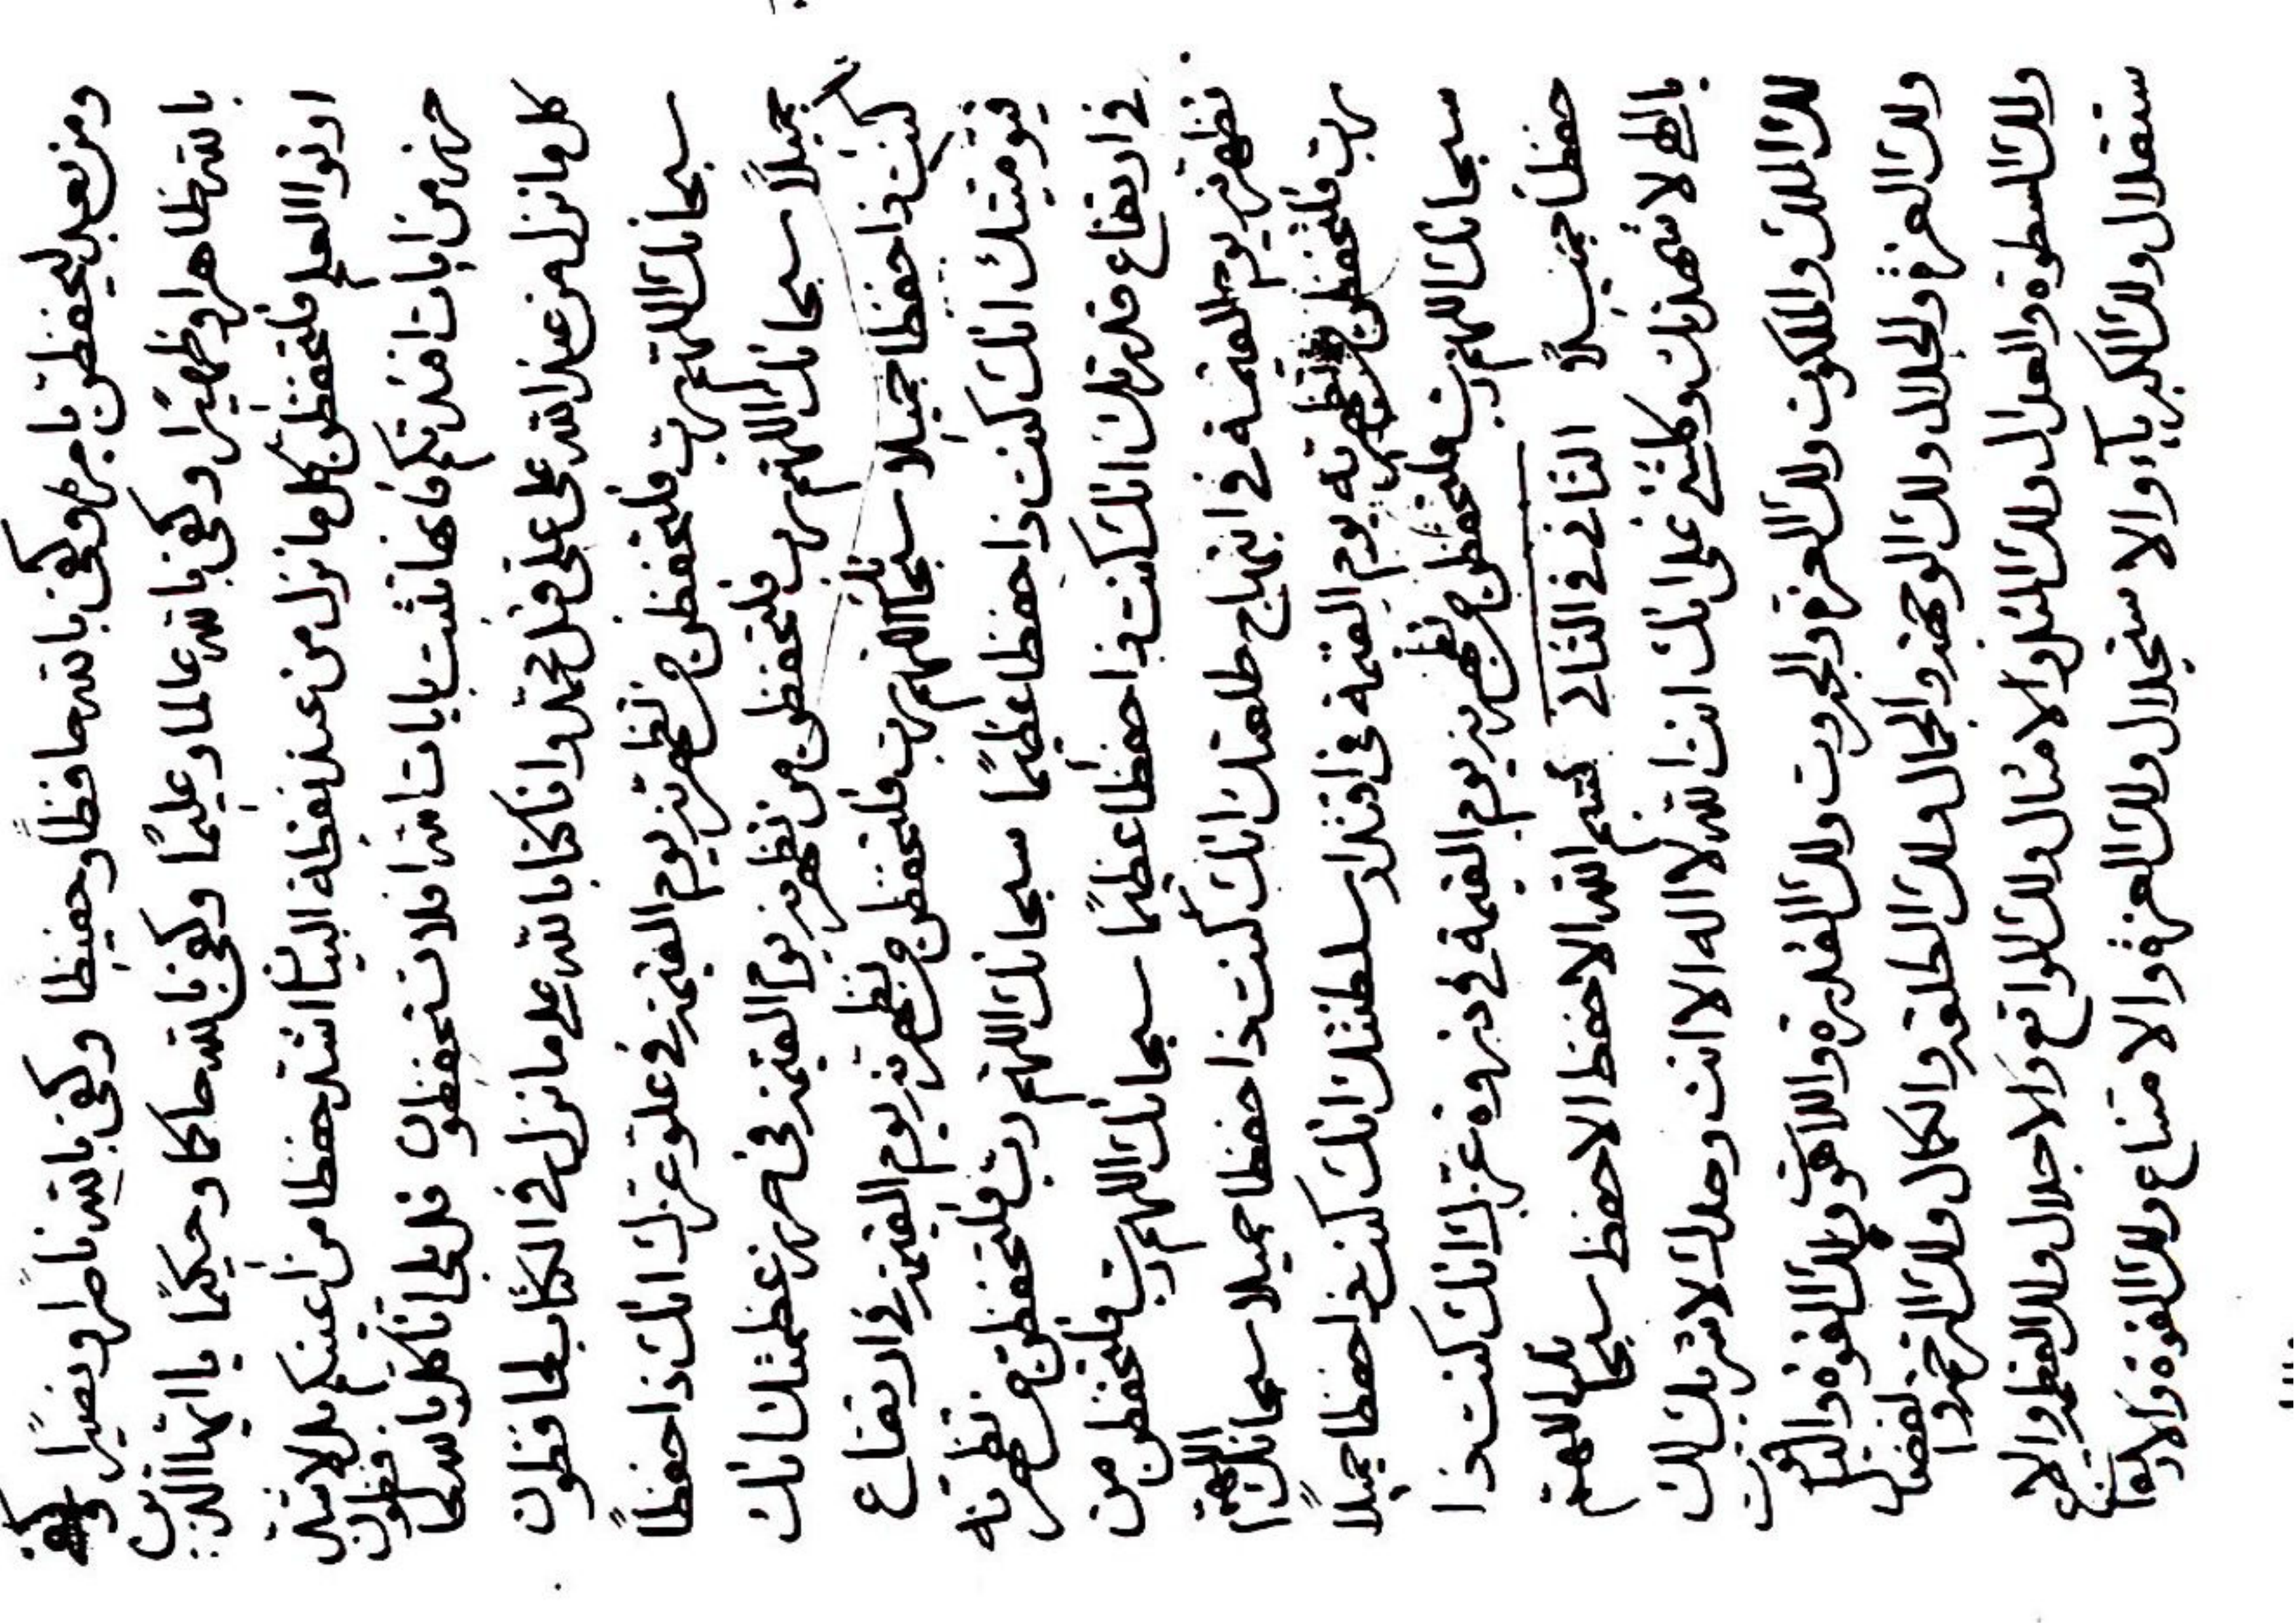 ومن بعد ليحفظن بامره وكفى بالله حافظاً وحفيظا وكفى بالله ناصراً ونصيرًا وكفى
بالله ظاهرا وظهيرًا وكفى بالله عالما وعليمًا وكفى بالله حاكما وحكيمًا يا ايها الذين
اوتوا العلم فلتحفظن كل ما نزل من عند نقطة البيان اشد حفظا من اعينكم بل لا
من ايات افئدتكم فانها تثبت بايات الله افلا تستحفظون قل بلى انا كل
كل ما نزل من عند الله على علي قبل محمد وانا كنا بالله على ما نزل في الكتاب لحافظون
سبحانك اللهم رب فلتحفظن من تظهرنه يوم القيمة في علو عزك انك ذا حفظاً
جميلاً سبحانك اللهم رب فلتحفظن من تظهرنه يوم القيمة في عظمتك انك
كنت ذا حفظا جميلا سبحانك اللهم رب فلتحفظن من تظهرنه يوم القيمة في ارتفاع
قيوميتك انك كنت ذا حفظا عظيمًا سبحانك اللهم رب فلتحفظن من تظهرنه
في ارتفاع قدرتك انك كنت ذا حفظا عظيمًا سبحانك اللهم رب فلتحفظن من
تظهرنه يوم القيمة في ابتهاج طلعتك انك كنت ذا حفظا جميلا سبحانك اللهم
رب فلتحفظن من تظهرنه يوم القيمة في اقتدار سلطنتك انك كنت ذا حفظا جميلاً
سبحانك اللهم رب فلتحفظن من تظهرنه يوم القيمة في ذروة عزك انك كنت ذا
حفظاً جميلاً الثاني في الثاني بسم الله الاحفظ الاحفظ سبحانك اللهم
يا الهي لاشهدنك وكلشئ على انك انت الله لا اله الا انت وحدك لا شريك لك
لك الملك والملكوت ولك العز والجبروت ولك القدرة واللاهوت ولك القوة والياقوت
ولك العزة والجلال ولك الوجهة والجمال ولك الطلعة والكمال ولك الرحمة والفضال
ولك السطوة والعدال ولك المثل والامثال ولك المواقع والاجلال ولك العظمة والا
ستقلال ولك الكبرياء والاستجلال ولك العزة والامتناع ولك القوة والارتفاع